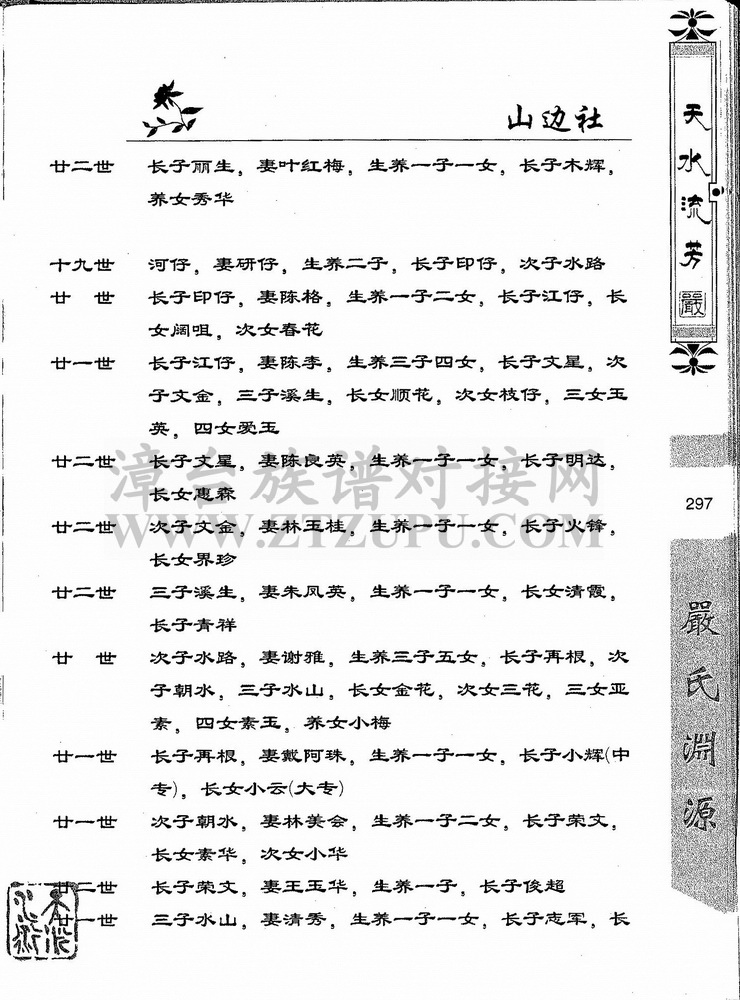 山边社
廿二世 长子丽生，妻叶红梅，生养一子一女，长子木辉，
养女秀华
十九世 河仔，妻研仔，生养二子，长子印仔，次子水路
廿 世 长子印仔，妻陈格，生养一子二女，长子江仔，长
女阔咀，次女春花
廿一世 长子江仔，妻陈李，生养三子四女，长子文星，次
子文金，三子溪生，长女顺花，次女枝仔，三女玉
英，四女爱玉
廿二世 长子文星，妻陈良英，生养一子一女，长子明达，
长女惠森
廿二世 次子文金，妻林玉桂，生养一子一女，长子火锋，
长女界珍
廿二世 三子溪生，妻朱凤英，生养一子一女，长女清霞，
长子青祥
廿 世 次子水路，妻谢雅，生养三子五女，长子再根，次
子朝水，三子水山，长女金花，次女三花，三女亚
素，四女素玉，养女小梅
廿一世 长子再根，妻戴阿珠，生养一子一女，长子小辉(中
专)，长女小云(大专)
廿一世 次子朝水，妻林美会，生养一子二女，长子荣文，
长女素华，次女小华
廿二世 长子荣文，妻王玉华，生养一子，长子俊超
廿一世 三子水山，妻清秀，生养一子一女，长子志军，长
天水流芳
嚴
297
嚴氏淵源
漳台族谱对接网
WWW.ZTZUPU.COM